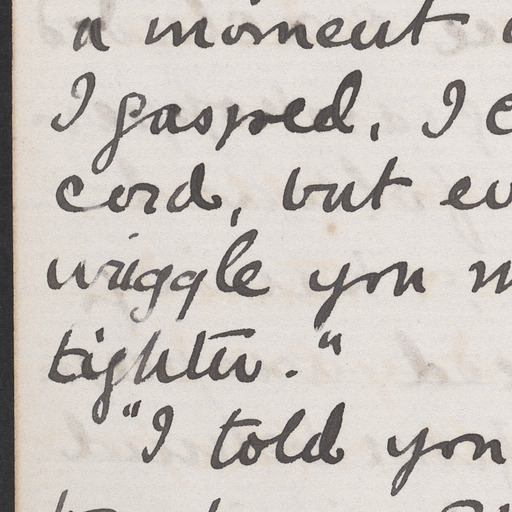 a moment
I gasped, I
cord, but
wriggle you
tighter."
"I told you